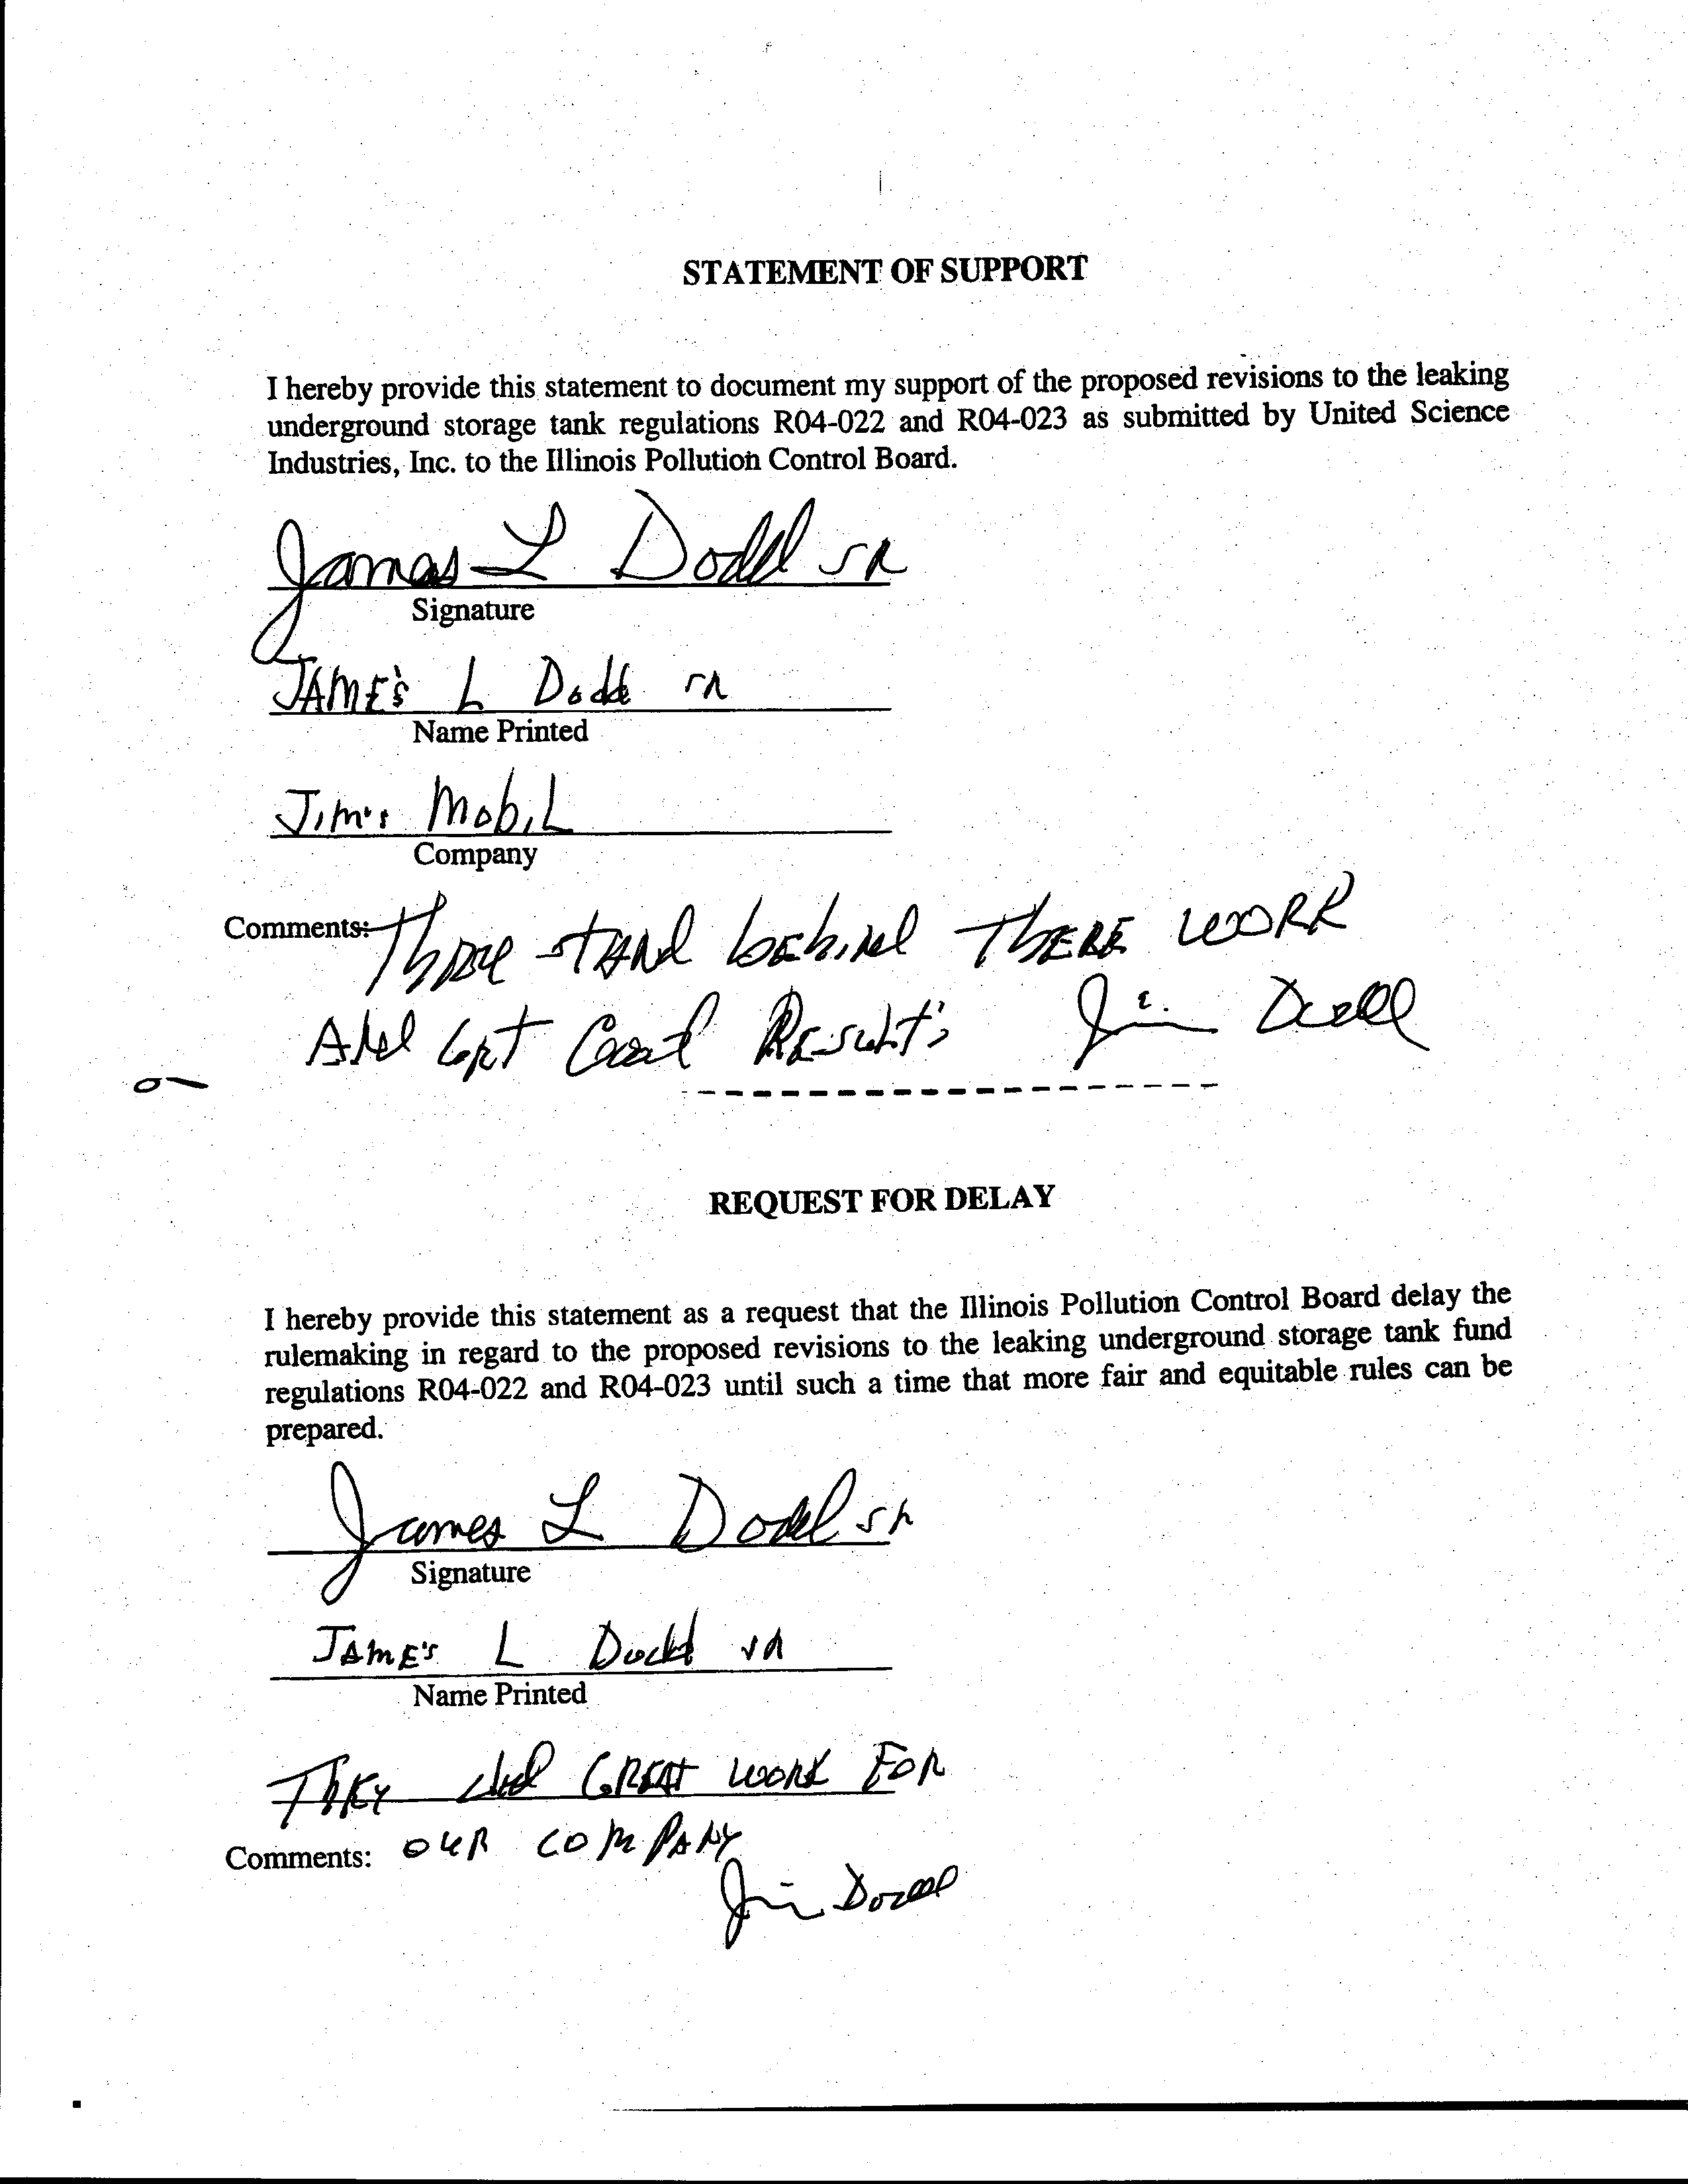 STATEMENT OF SUPPORT
I hereby provide this statement to document my support of the proposed revisions to the leaking
underground storage tank regulations R04-022 and R04-023 as submitted by United Science
Industries, Inc. to the Illinois Pollution Control Board.
James L Dodd SR
Signature
JAMES L Dodd SR
Name Printed
Jim's Mobil
Company
Comments: stand behind THERE WORK
And Get Good Results Jim Dodd
REQUEST FOR DELAY
I hereby provide this statement as a request that the Illinois Pollution Control Board delay the
rulemaking in regard to the proposed revisions to the leaking underground storage tank fund
regulations R04-022 and R04-023 until such a time that more fair and equitable rules can be
prepared.
James L Dodd SR
Signature
JAME'S L Dodd SR
Name Printed
THEY did GREAT WORK FOR
Comments: OUR COMPANY
Jim Dodd